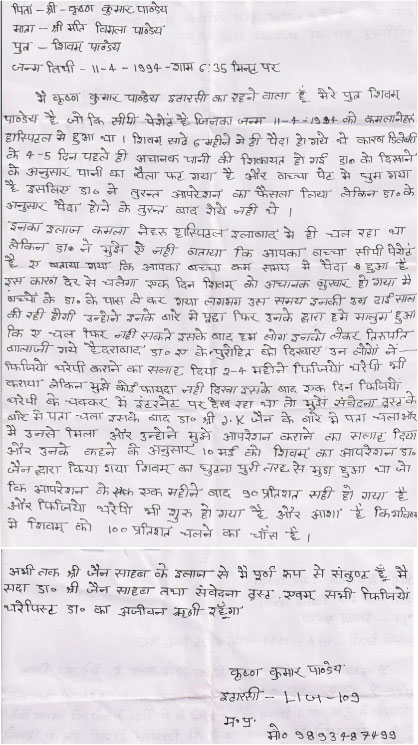 पिता - श्री - कृष्णा कुमार पाण्डेय
माता - श्री मति विमला पाण्डेय
पुत्र - शिवम् पाण्डेय
जन्म तिथी - 11-4-1994 - शाम 6:35 मिनट पर
मै कृष्णा कुमार पाण्डेय इटारसी का रहने वाला हूँ मेरे पुत्र शिवम्
पाण्डेय है जो कि सीपी पेशेंट है जिनका जन्म 11-4-1994 को कमलानेहरु
हास्पिटल मे हुआ था । शिवम् साढे 6 महीने मे ही पैदा हो गये थे कारण डिलेवरी
के 4-5 दिन पहले ही अचानक पानी की शिकायत हो गई डा० को दिखाने
के अनुसार पानी का थैला फट गया है और बच्चा पेट मे घुम गया
है इसलिए डा० ने तुरन्त आपरेशन का फैसला लिया लेकिन डा० के
अनुसार पैदा होने के तुरन्त बाद रोये नही थे ।
इनका इलाज कमला नेहरु हास्पिटल इलाबाद मे ही चल रहा था
लेकिन डा० ने मुझे ए नही बताया कि आपका बच्चा सीपी पेशेंट
है ए बताया गया कि आपका बच्चा कम समय मे पैदा हुआ है
इस कारण देर से चलेगा एक दिन शिवम् को अचानक बुखार हो गया मै
बच्चो के डा० के पास ले कर गया लगभग उस समय इनकी उम्र ढाई साल
की रही होगी उन्होने इनके बारे मे पूछा फिर उनके द्वारा हमे मालुम हुआ
कि ए चल फिर नही सकते इसके बाद हम लोग इनको लेकर तिरुपति
बालाजी गये हैदराबाद डा० ए के पुरोहित को दिखाये उन लोगो ने
फिजियो थरेपी कराने का सलाह दिया 2-4 महीने फिजियो थरेपी भी
कराया लेकिन मुझे कोई फायदा नही दिखा इसके बाद एक दिन फिजियो
थरेपी के चक्कर मे इंटरनेट पर देख रहा था तो मुझे संवेदना ट्रस्ट के
बारे मे पता चला इसके बाद डा० श्री J.K जैन के बारे मे पता चला और
मै उनसे मिला और उन्होने मुझे आपरेशन कराने का सलाह दिया
और उनके कहने के अनुसार 10 मई को शिवम् का आपरेशन डा०
जैन द्वारा किया गया शिवम् का घुटना पुरी तरह से मुडा हुआ था जो
कि आपरेशन के एक महीने बाद 90 प्रतिशत सही हो गया है
और फिजियो थरेपी भी शुरु हो गया है और आशा है कि भविष्य
मे शिवम् को 100 प्रतिशत चलने का चाँस है ।
अभी तक श्री जैन साहबा के इलाज से मै पूर्ण रूप से संतुष्ट हूँ मै
सदा डा० श्री जैन साहबा तथा संवेदना ट्रस्ट, एवम् सभी फिजियो
थरेपिस्ट डा० का अजीवन ऋणी रहूँगा
कृष्णा कुमार पाण्डेय
इटारसी - LIG-109
म.प्र.
मो० 9893487499